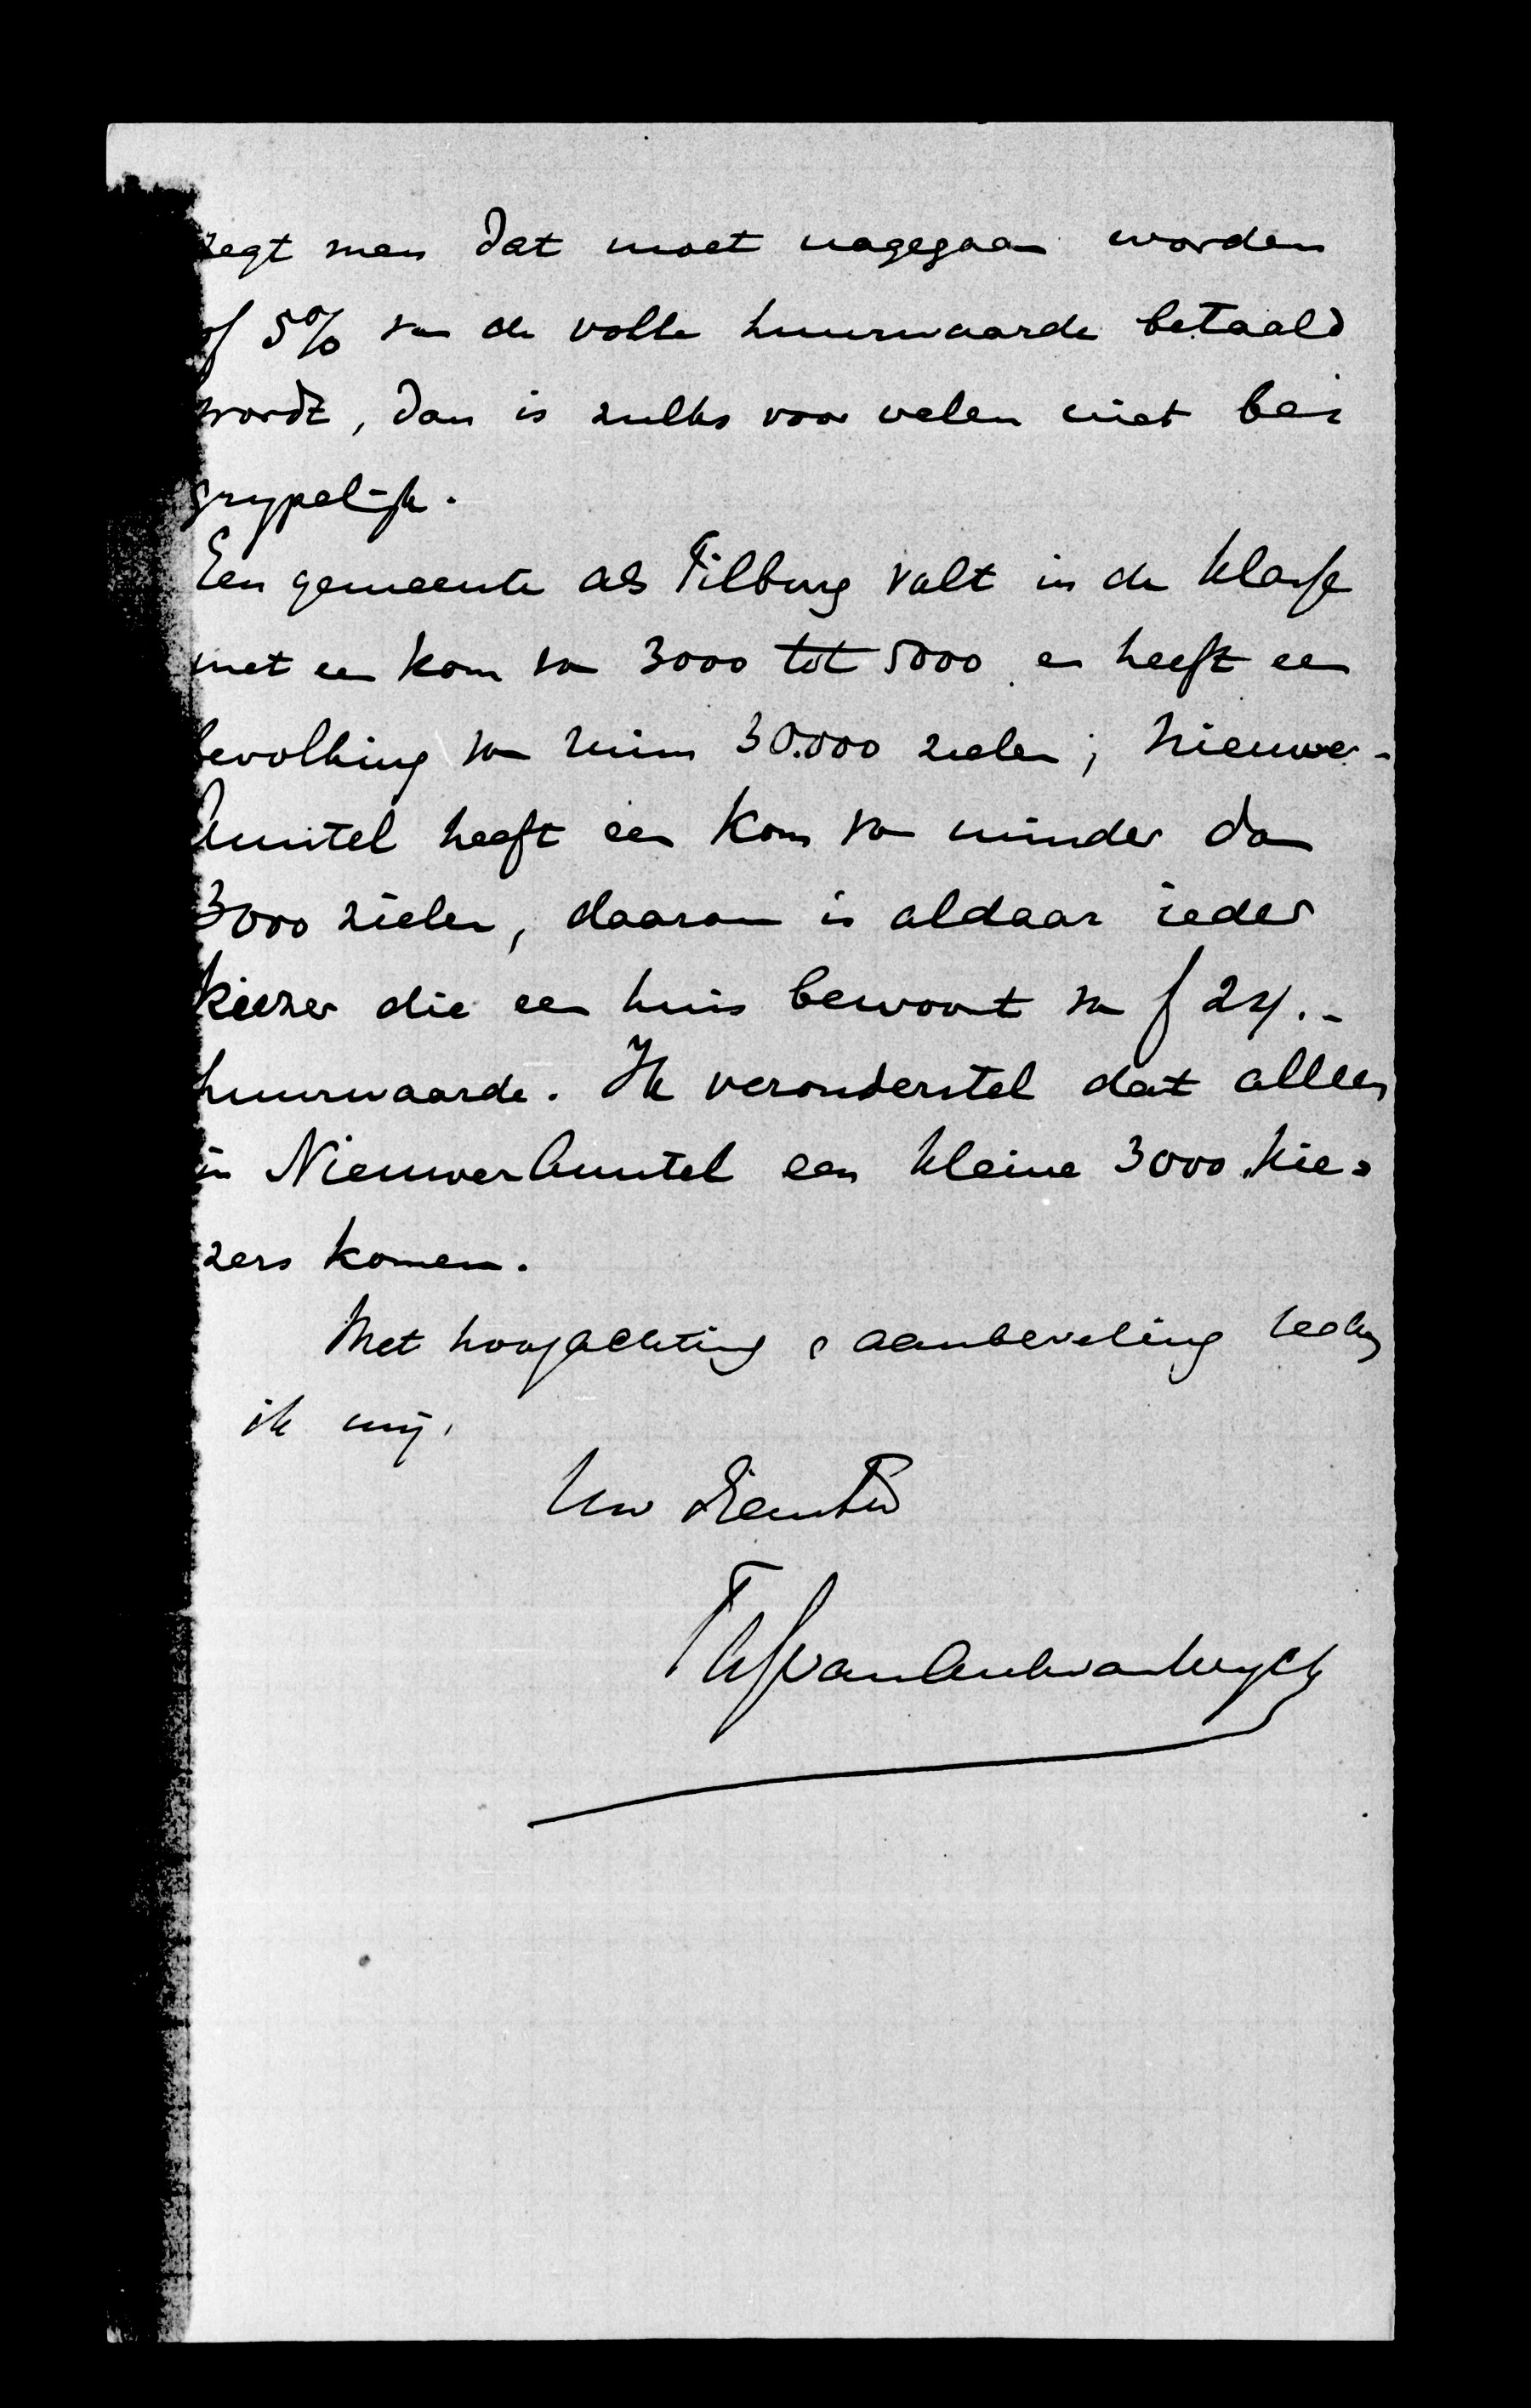 zegt men dat moet nagegaan worden
of 5% van de volle huurwaarde betaald
wordt, dan is zulks voor velen niet be=
grypelijk.
Een gemeente als Tilburg valt in de klasse
met een kom van 3000 tot 5000 en heeft een
bevolking van ruim 30.000 zielen; Nieuwer-
Amstel heeft een kom van minder dan
3000 zielen, daarom is aldaar ieder
kiezer die een huis bewoont van f 24.-
huurwaarde. Ik veronderstel dat alleen
in Nieuwer Amstel een kleine 3000 kie=
zers komen.
Met hoogachting & aanbeveling
ik mij,
Uw